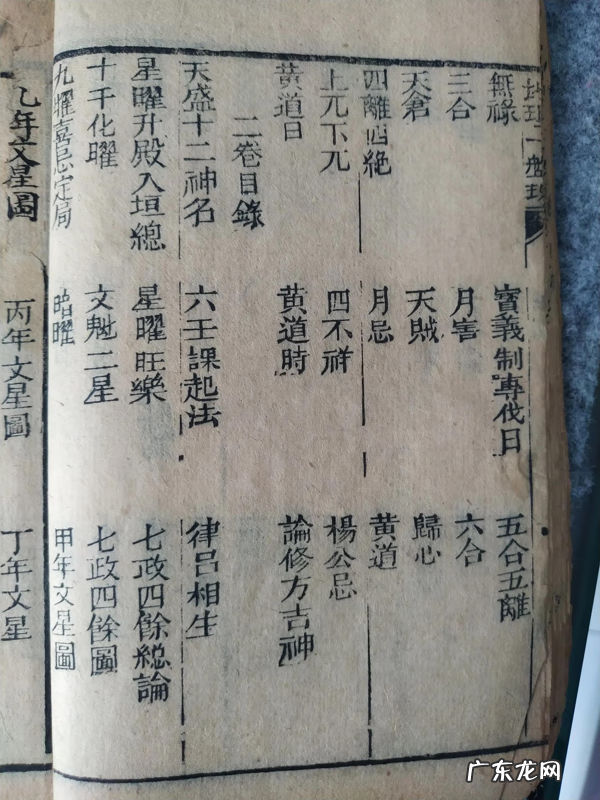 無祿 寶義制專伐日 五合五離
三合 月害 六合
天倉 天賊 歸忌
四離四絕 月忌 黃道
上兀下兀 四不祥 楊公忌
黃道日 黃道時 論修方吉神
二卷目錄
天盛十二神名 六壬課起法 律呂相生
星曜升殿入垣總 星曜旺樂 七政四餘總論
十干化曜 文魁二星 七政四餘圖
九曜喜忌定局 暗曜 甲年文星圖
乙年文星圖 丙年文星圖 丁年文星
广东龙网